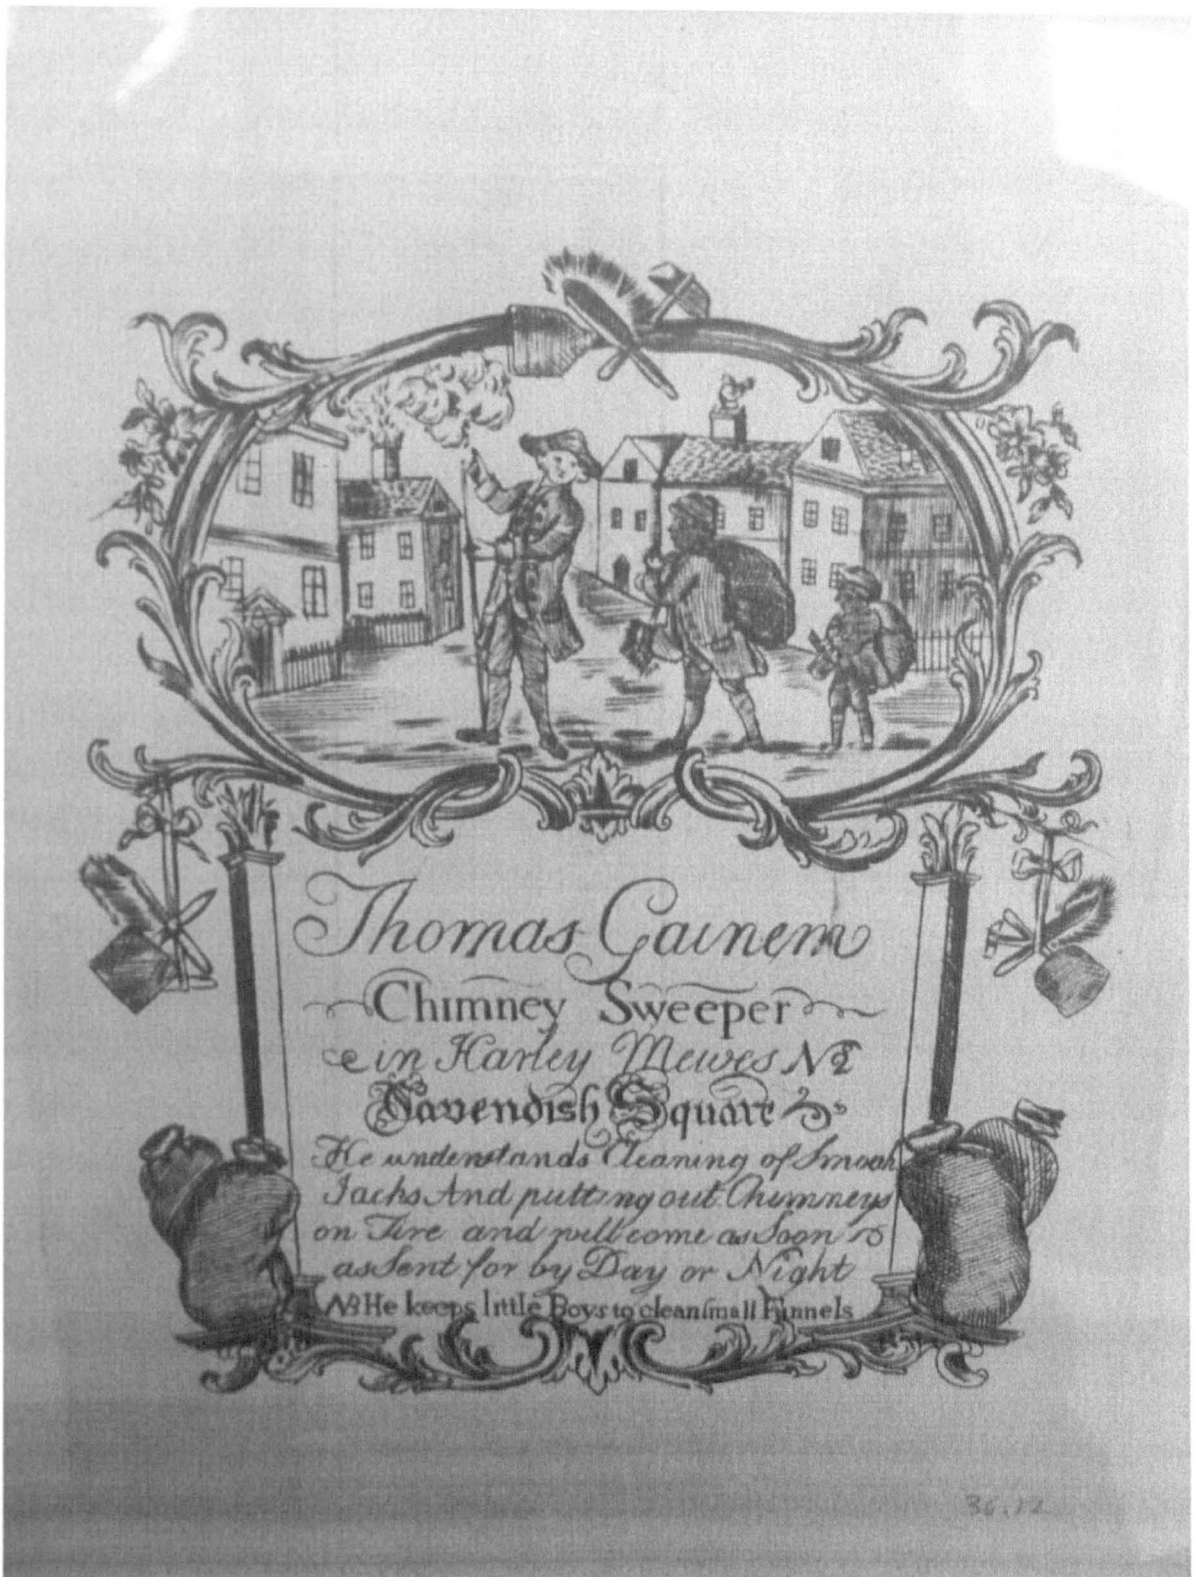 Thomas Gainem
Chimney Sweeper
in Harley Mewes No 2
Cavendish Square
He understands Cleaning of Smoak
Jacks And putting out Chimneys
on Fire and will come as Soon
as Sent for by Day or Night
NB He keeps little Boys to clean ſmall Funnels
36.12